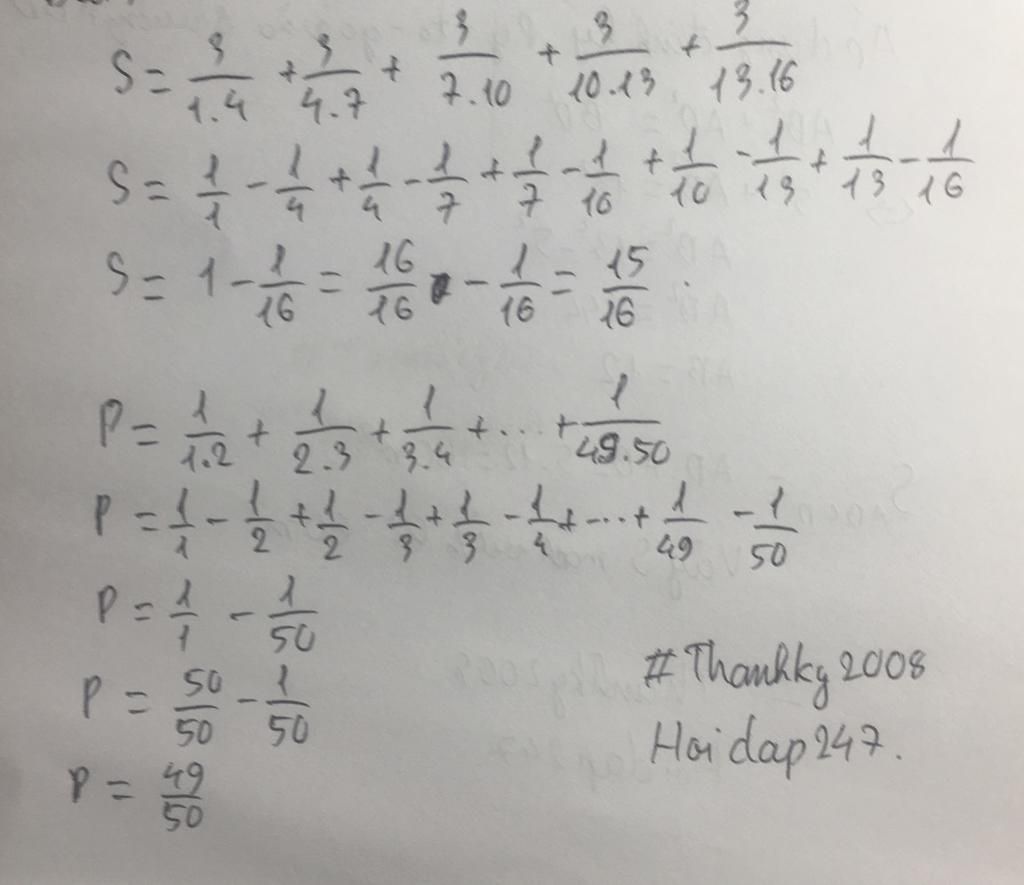 S = 3/1.4 + 3/4.7 + 3/7.10 + 3/10.13 + 3/13.16
S = 1/1 - 1/4 + 1/4 - 1/7 + 1/7 - 1/10 + 1/10 - 1/13 + 1/13 - 1/16
S = 1 - 1/16 = 16/16 - 1/16 = 15/16.
P = 1/1.2 + 1/2.3 + 1/3.4 + ... + 1/49.50
P = 1/1 - 1/2 + 1/2 - 1/3 + 1/3 - 1/4 + ... + 1/49 - 1/50
P = 1/1 - 1/50
P = 50/50 - 1/50
P = 49/50
#Thanhky2008
Hoidap247.